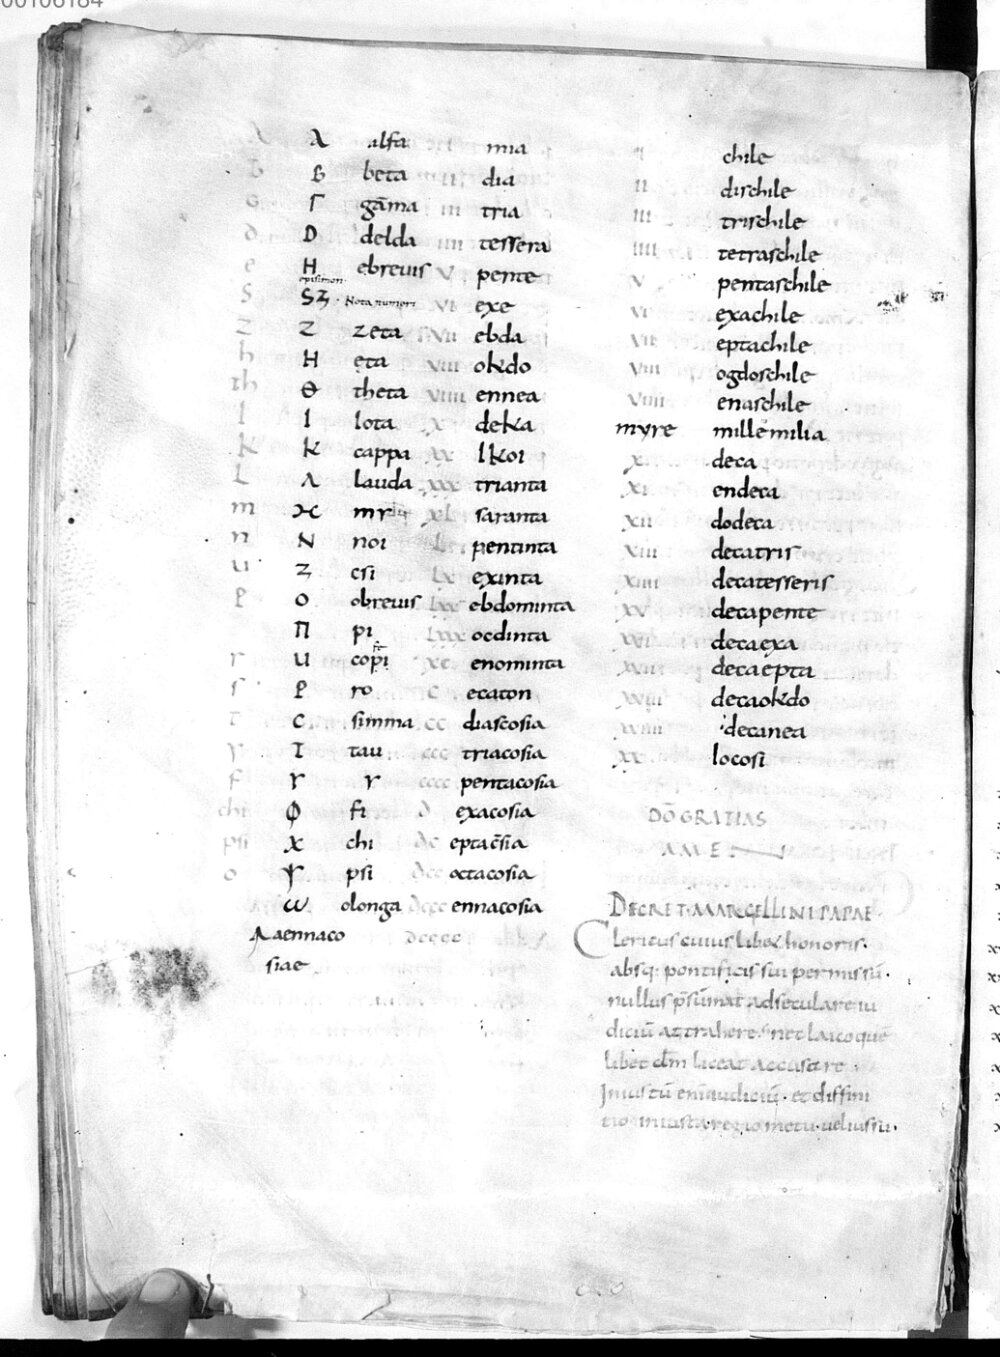 00106184
λ Α alfa mia
b Β beta ii dia
G Γ gām̄a iii tria
d D delda iiii tessera
e H ebreuis v pente
episimon
S Ϛ3 Nota numeri vi exe
Z Z zeta vii ebda
h H eta viii okdo
th Θ theta viiii ennea
I I Iota x deka
K K cappa xx Ikoi
L Λ lauda xxx trianta
m ϰ mr xl saranta
n N noi l pentinta
u Z csi lx exinta
p O obreuis lxx ebdominta
Π pi lxxx ocdinta
r U copi xc enominta
s P ro c ecaton
t C simma cc diascosia
y T tau ccc triacosia
f Υ Υ cccc pentacosia
chi Φ fi d exacosia
psi X chi dc eptacsia
o Ψ psi dcc octacosia
ω olonga dccc ennacosia
λaennaco dcccc
siae
chile
ii dischile
iii trischile
iiii tetraschile
v pentaschile
vi exachile
vii eptachile
viii ogdoschile
viiii enaschile
myre mille milia
x deca
xi endeca
xii dodeca
xiii decatris
xiiii decatesseris
xv decapente
xvi decaexa
xvii decaepta
xviii decaokdo
xviiii decanea
xx Icosi
DŌ GRATIAS
AMEN
DECRET· MARCELLINI PAPAE·
Clericus cuius libet honoris·
absq· pontificis sui permissū·
nullus p̄sumat ad seculare iu
diciū attrahere· nec laico que
libet clm liceat accusare
Iniustū eni iudiciū· et diffini
tio iniusta regio metu· uel iussu·